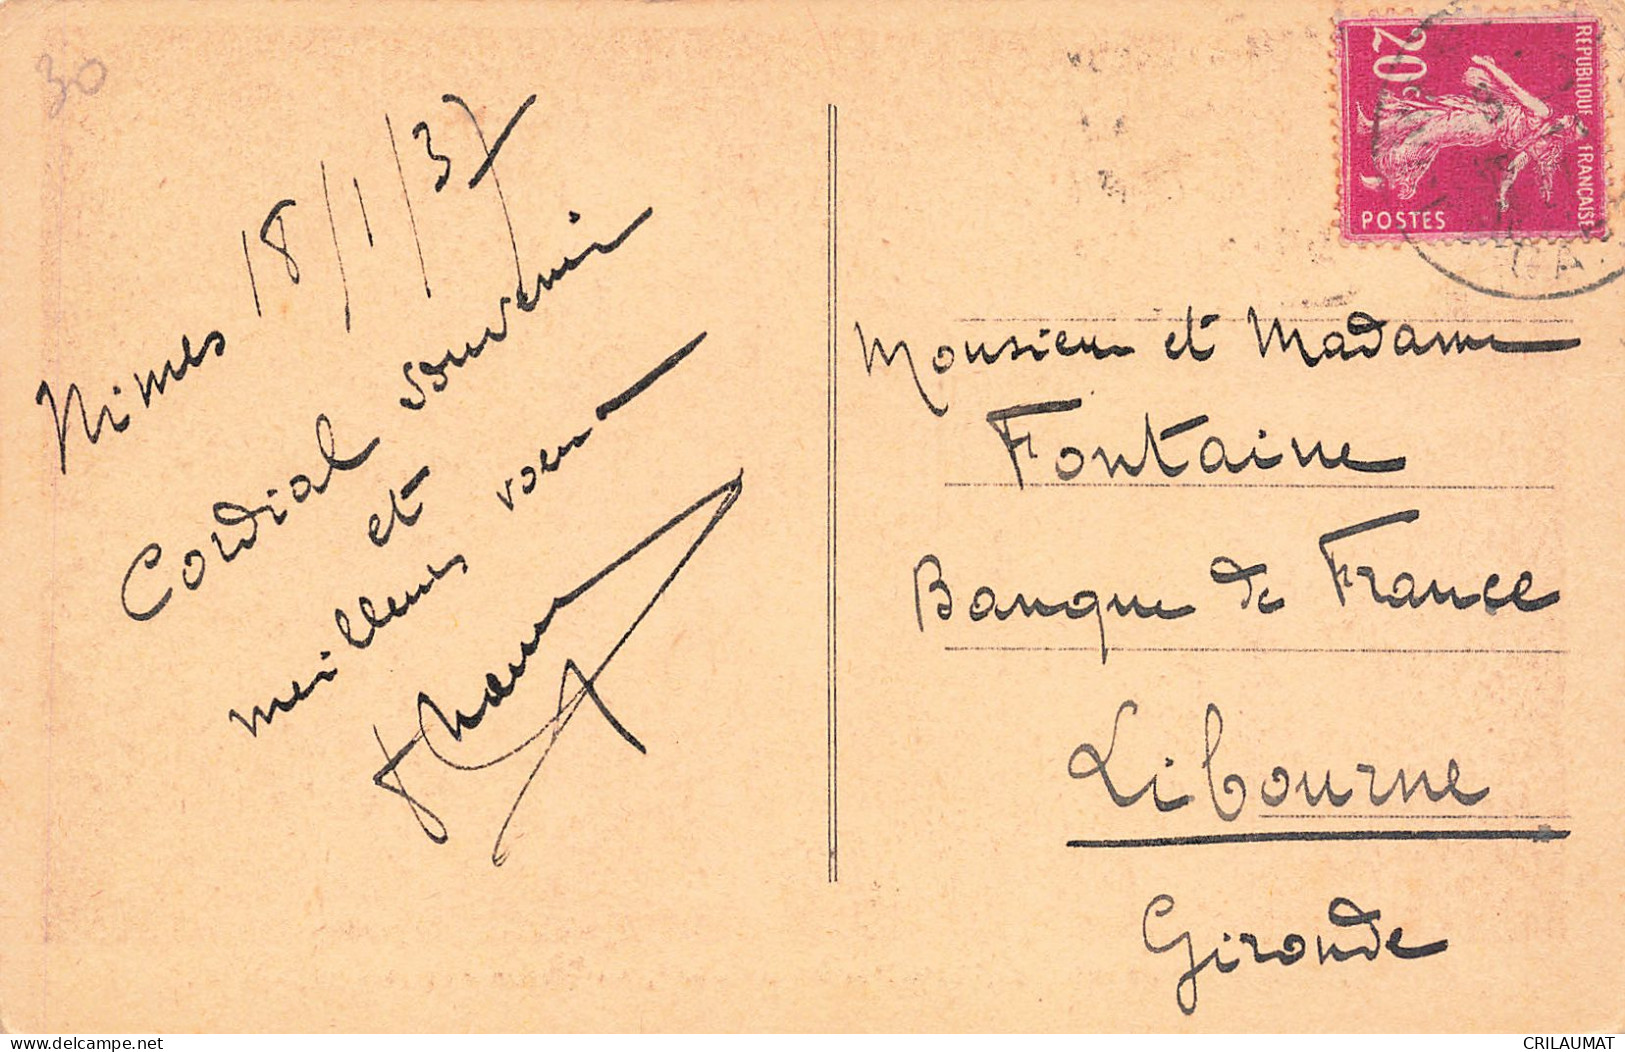 30
Nimes 18/1/37
Cordial souvenir
et
meilleurs voeux
Monsieur et Madame
Fontaine
Banque de France
Libourne
Gironde
20c
REPUBLIQUE FRANÇAISE
POSTES
www.delcampe.net
CRILAUMAT